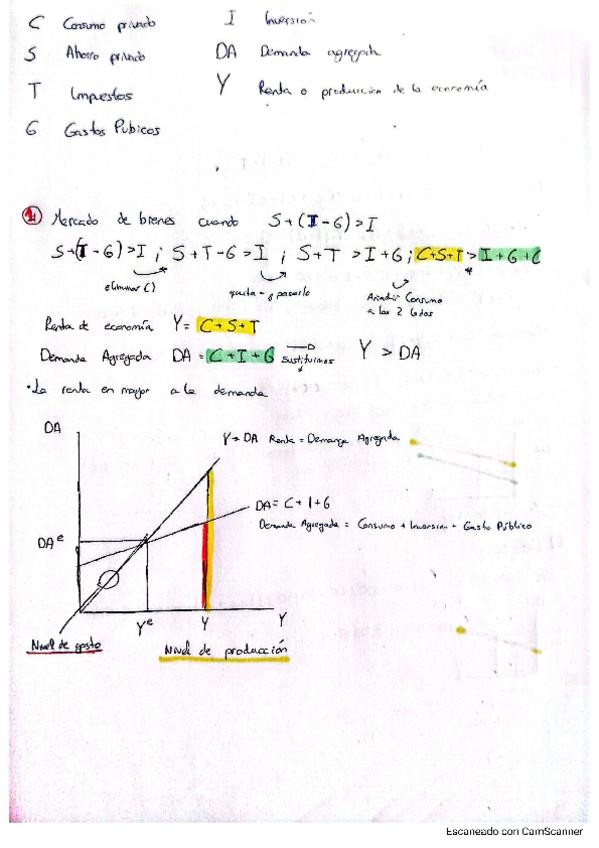 C Consumo privado I Inversión
S Ahorro privado DA Demanda agregada
T Impuestos Y Renta o producción de la economía
G Gastos Públicos
1 Mercado de bienes cuando S+(T-G)>I
S+(T-G)>I ; S+T-G>I ; S+T >I+G ; C+S+T>I+G+C
eliminar () quita -g pasarlo Añadir Consumo
a los 2 lados
Renta de economía Y= C+S+T
Demanda Agregada DA =C+I+G Sustituimos Y > DA
• La renta en mayor a la demanda
DA
Y=DA Renta = Demanda Agregada
DA= C+I+G
Demanda Agregada = Consumo + Inversión + Gasto Público
DAe
Ye Y Y
Nivel de gasto Nivel de producción
Escaneado con CamScanner